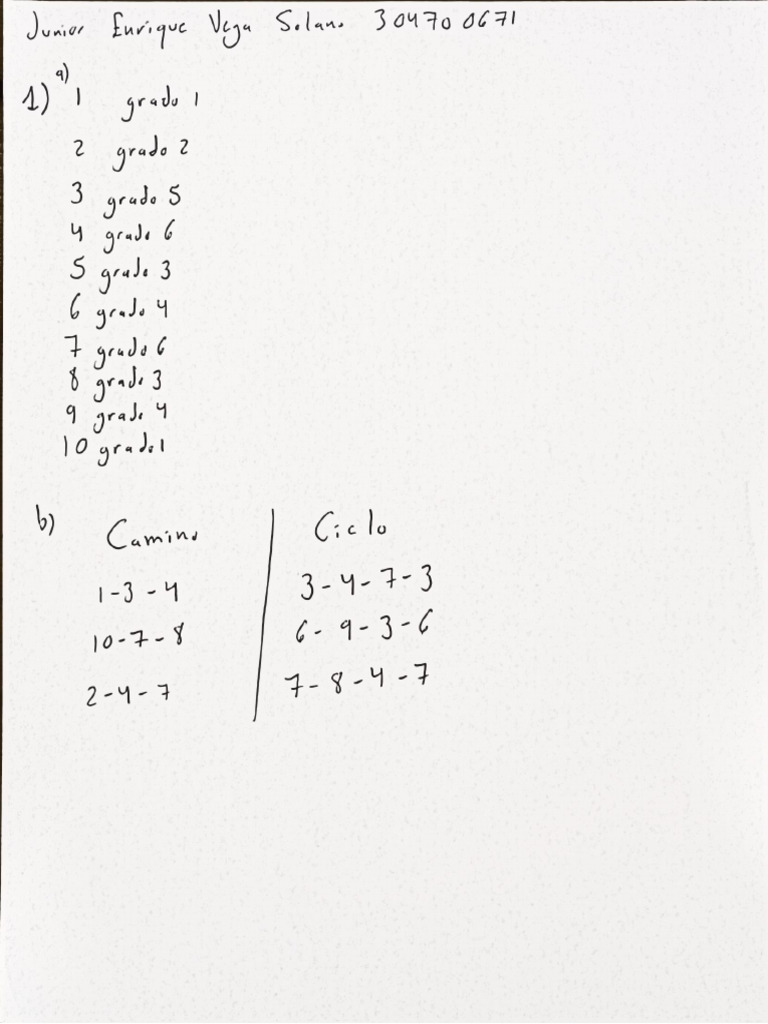 Junior Enrique Vega Solano 304700671
1) a) 1 grado 1
2 grado 2
3 grado 5
4 grado 6
5 grado 3
6 grado 4
7 grado 6
8 grado 3
9 grado 4
10 grado 1
b) Camino Ciclo
1-3-4 3-4-7-3
10-7-8 6-9-3-6
2-4-7 7-8-4-7